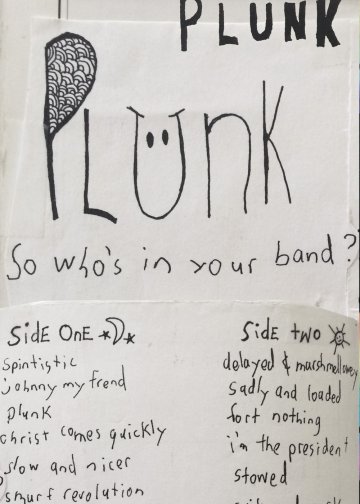 PLUNK
PLUnK
So who's in your band?
SidE OnE
Spintistic
johnny my frend
plunk
christ comes quickly
slow and nicer
smurf revolution
Side two
delayed & marshmellowey
sadly and loaded
fort nothing
i'm the president
stowed